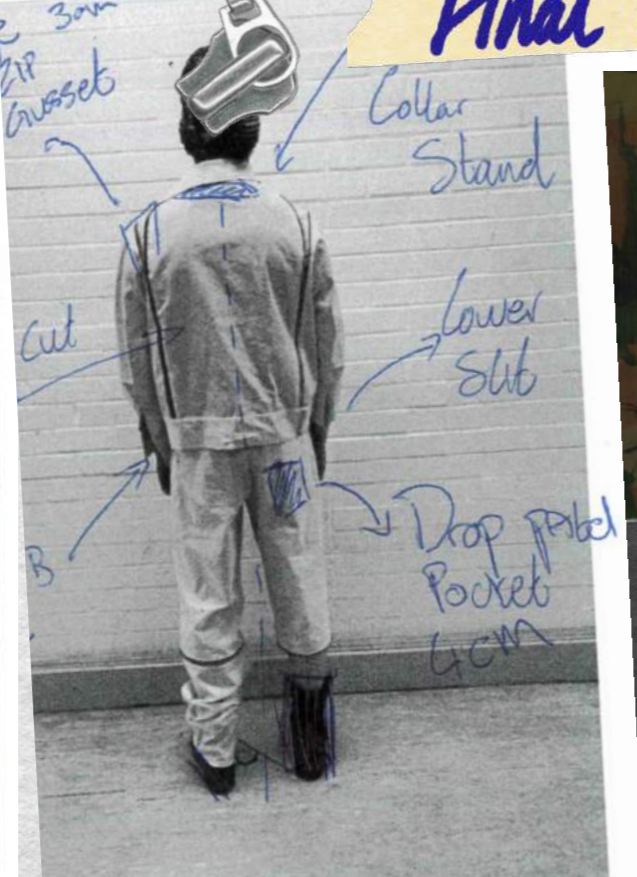 Final
ZIP
Gusset
Collar
Stand
Cut
Lower
Slit
B
Drop
Pocket
4cm